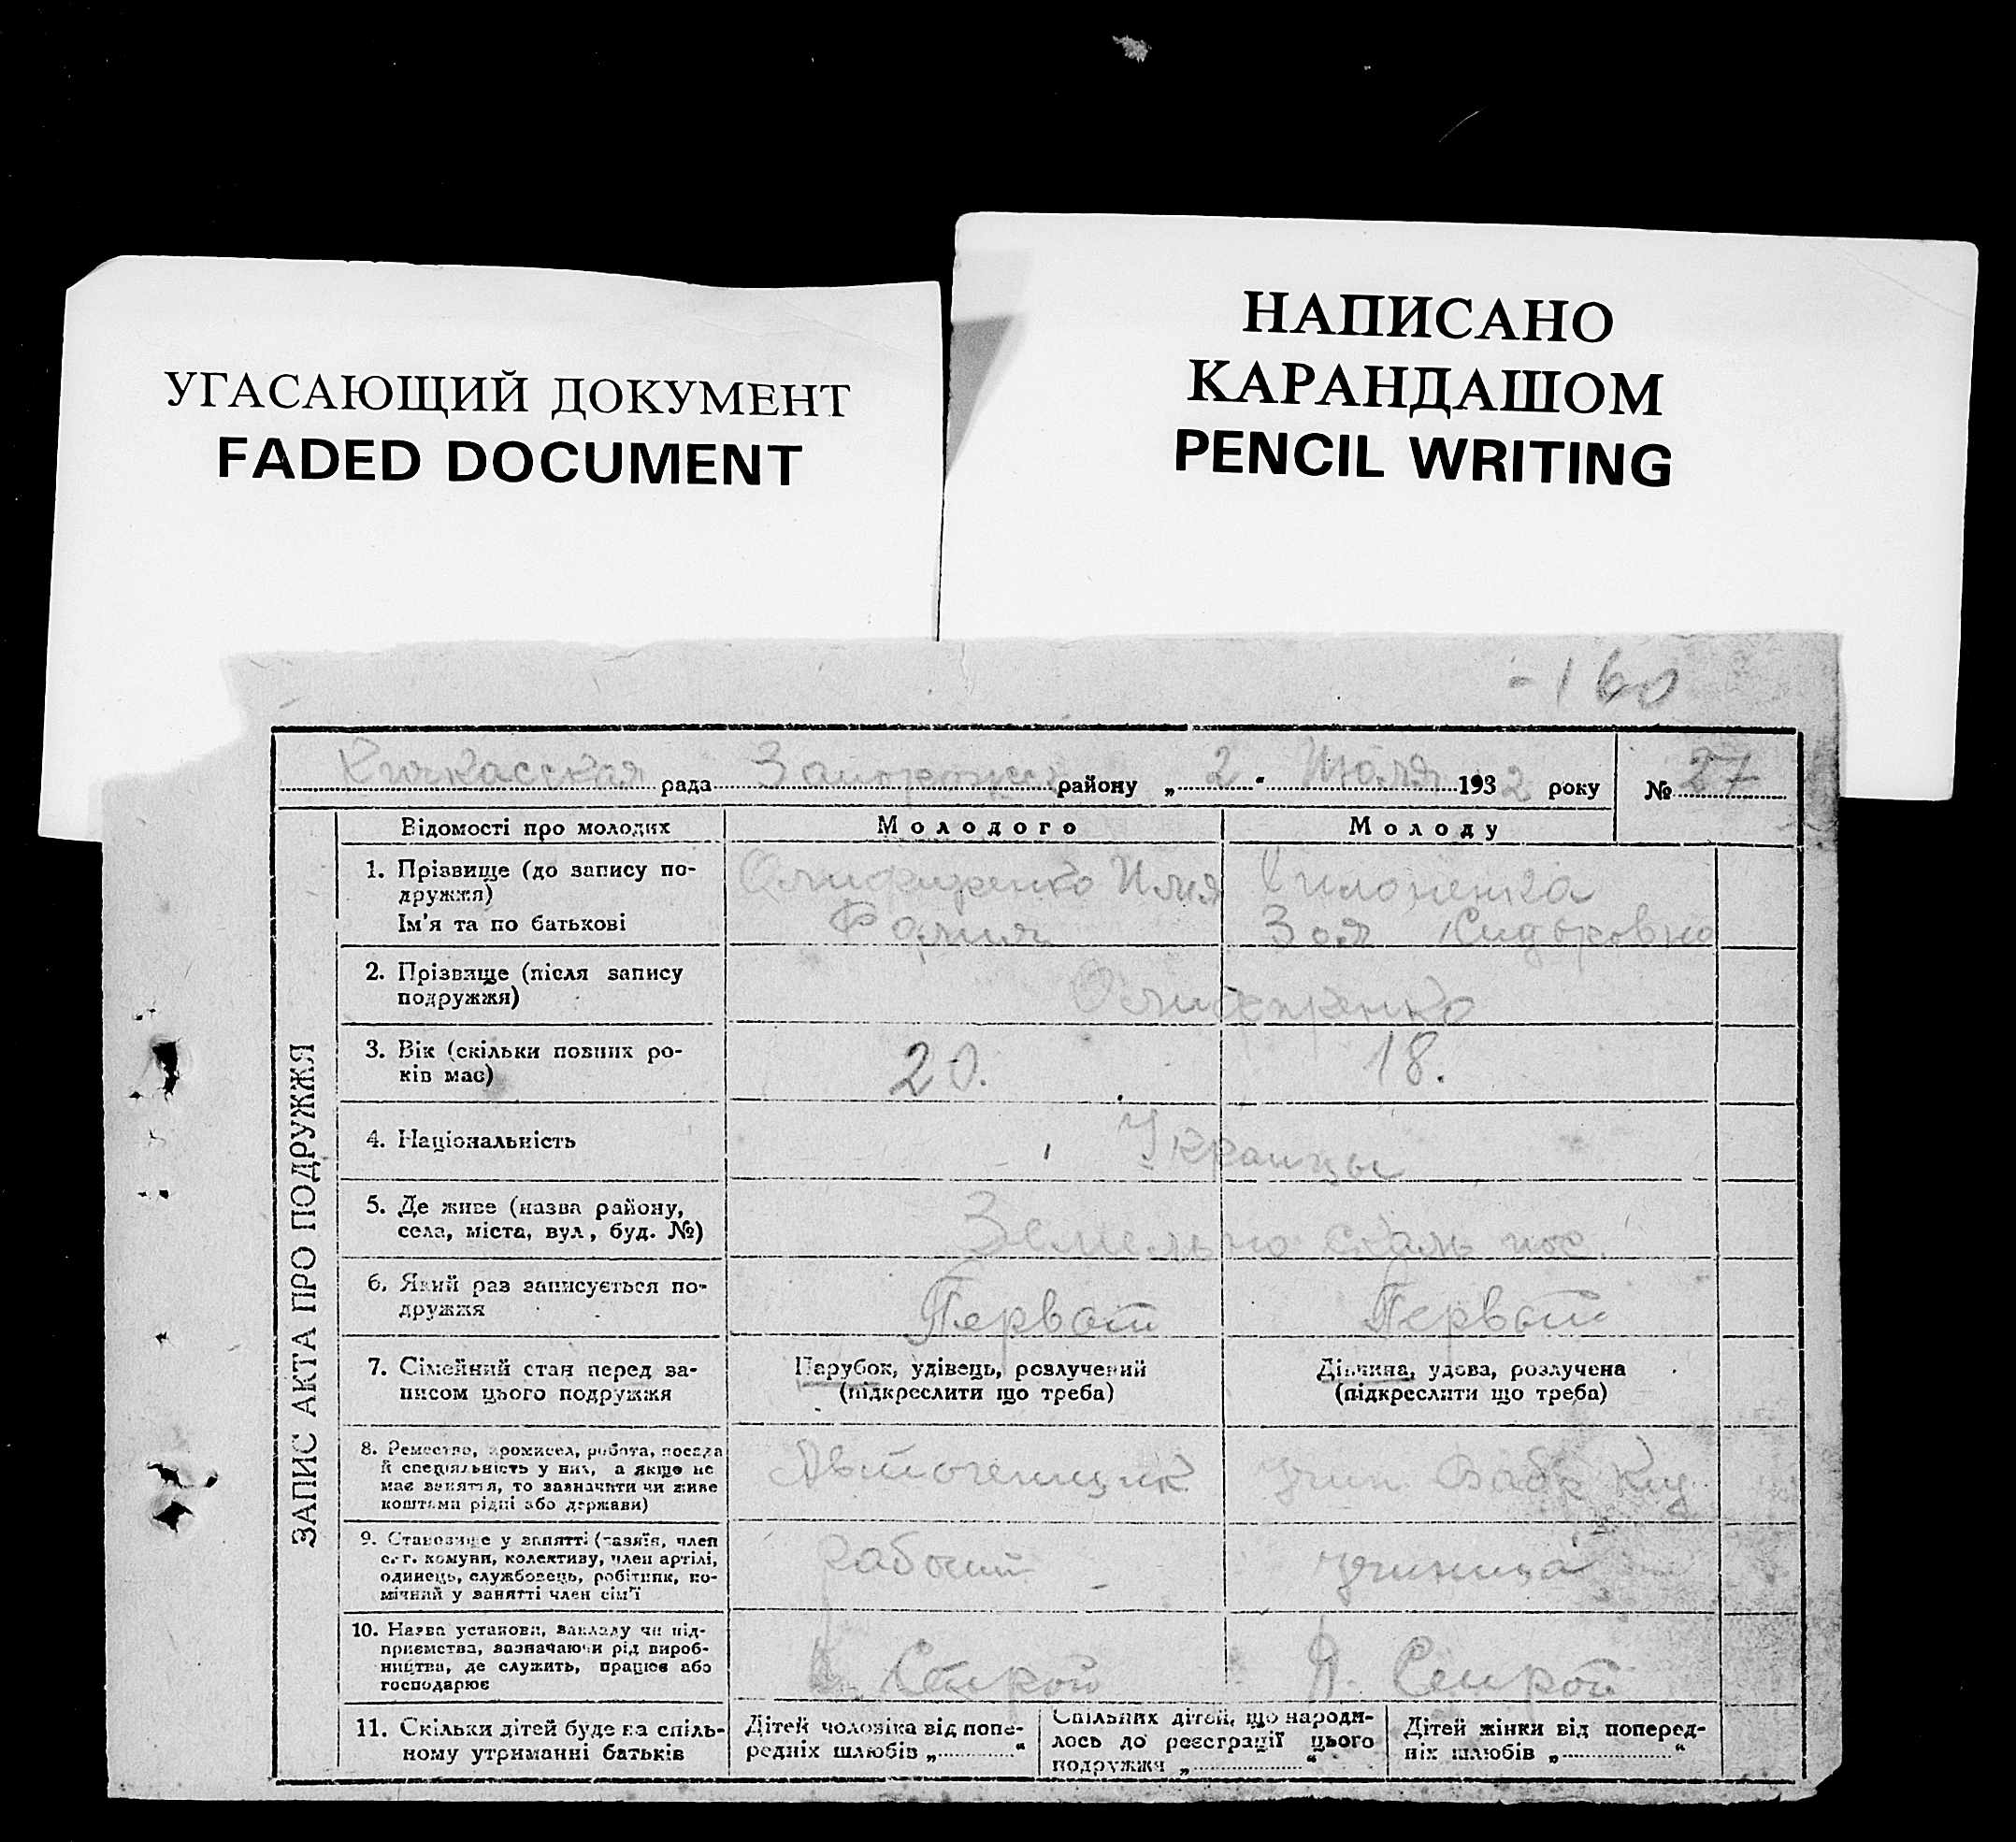 УГАСАЮЩИЙ ДОКУМЕНТ
FADED DOCUMENT
НАПИСАНО
КАРАНДАШОМ
PENCIL WRITING
-160
Кичкасская рада Запорожск району „ 2 " Июля 1932 року № 27
ЗАПИС АКТА ПРО ПОДРУЖЖЯ
Відомості про молодих Молодого Молоду
1. Прізвище (до запису по-
дружжя)
Ім'я та по батькові
Илия
Зоя Сидоровна
2. Прізвище (після запису
подружжя)
3. Вік (скільки повних ро-
ків має)
20. 18.
4. Національність
Украинцы
5. Де живе (назва району,
села, міста, вул., буд. №)
пос.
6. Який раз записується по-
дружжя
Первый Первый
7. Сімейний стан перед за-
писом цього подружжя
Парубок, удівець, розлучений
(підкреслити що треба)
Дівчина, удова, розлучена
(підкреслити що треба)
8. Ремество, промисел, робота, посада
й спеціяльність у них, а якщо не
має заняття, то зазначити чи живе
коштами рідні або держави)
Автогенщик
9. Становище у занятті (хазяїн, член
с.-г. комуни, колективу, член артілі,
одинець, службовець, робітник, по-
мічний у занятті член сім'ї
рабочий ученица
10. Назва установи, закладу чи під-
приємства, зазначаючи рід вироб-
ництва, де служить, працює або
господарює
11. Скільки дітей буде на спіль-
ному утриманні батьків
Дітей чоловіка від попе-
редніх шлюбів „ "
Спільних дітей, що народи-
лось до реєстрації цього
подружжя „ "
Дітей жінки від поперед-
ніх шлюбів „ "